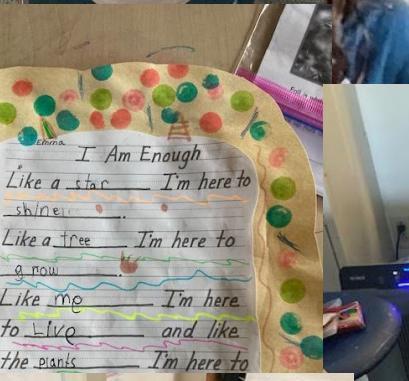 Emma
I Am Enough
Like a star I'm here to
shine.
Like a tree I'm here to
grow.
Like me I'm here
to Live and like
the plants I'm here to